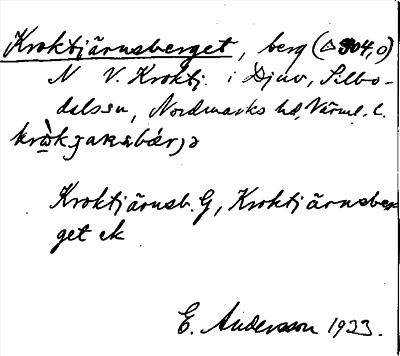 Kroktjärnsberget, berg (△304,0)
N V. Kroktj. i Djuv, Silbo-
dals sn, Nordmarks hd, Värml. l.
Kroktjärnsb. G, Kroktjärnsber
get ek
E. Andersson 1933.